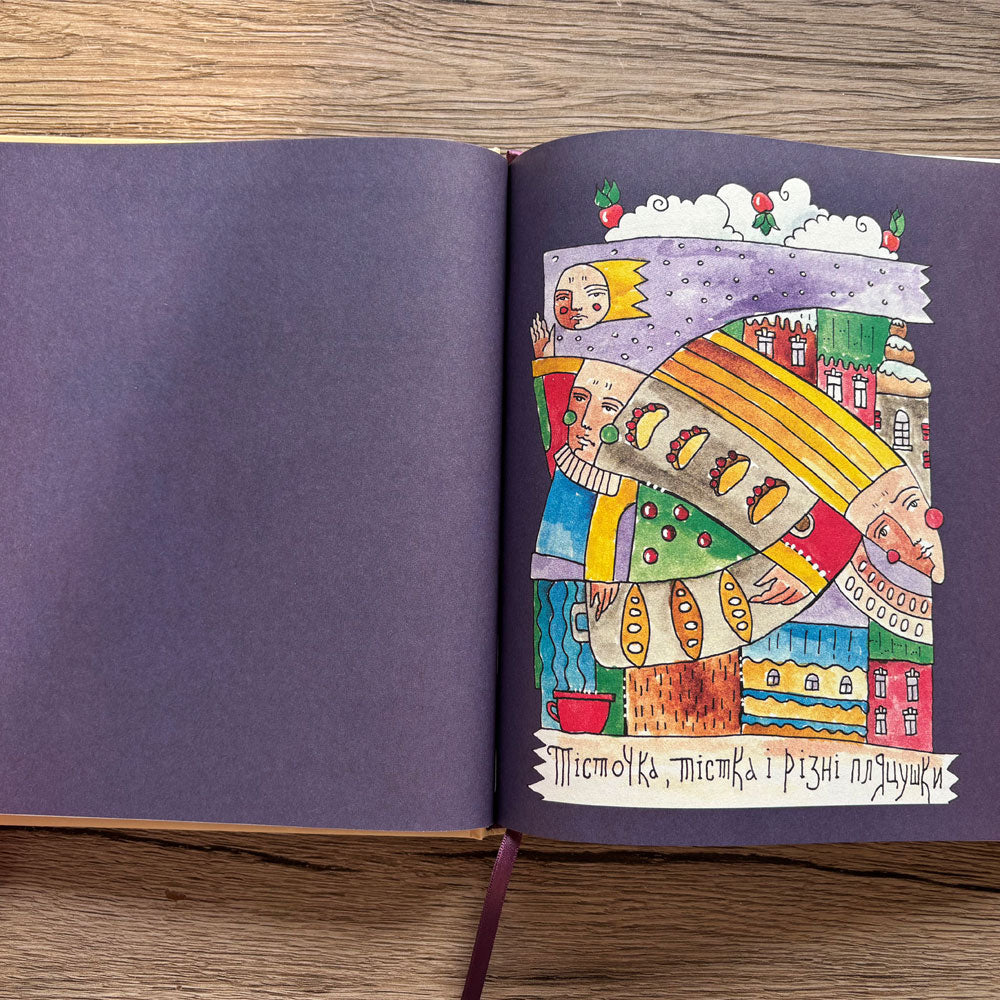 Місточка, тістка і різні пляцушки